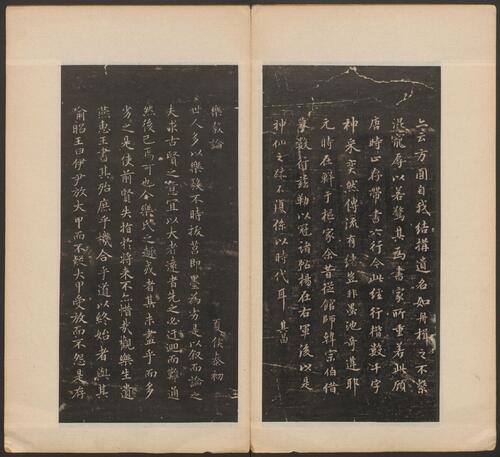 云方圓自我結構遺名如舟楫之不繫
混寵辱以若驚其為書家所重若此顧
唐時止存帶書六行今此經行楷數千字
神采奕然傳流有緒豈非墨池奇遘耶
元時在鮮于樞家余昔從館師韓宗伯借
摹數行茲勒以冠諸帖楊在右軍後以是
神仙之跡不復係以時代耳 其昌
樂毅論 夏侯泰初
世人多以樂毅不時拔莒即墨為劣是以叙而論之
夫求古賢之意宜以大者遠者先之必迂迴而難通
然後已焉可也今樂氏之趣或者其未盡乎而多
劣之是使前賢失指於將來不亦惜哉觀樂生遺
燕惠王書其殆庶乎機合乎道以終始者與其
喻昭王曰伊尹放大甲而不疑大甲受放而不怨是存